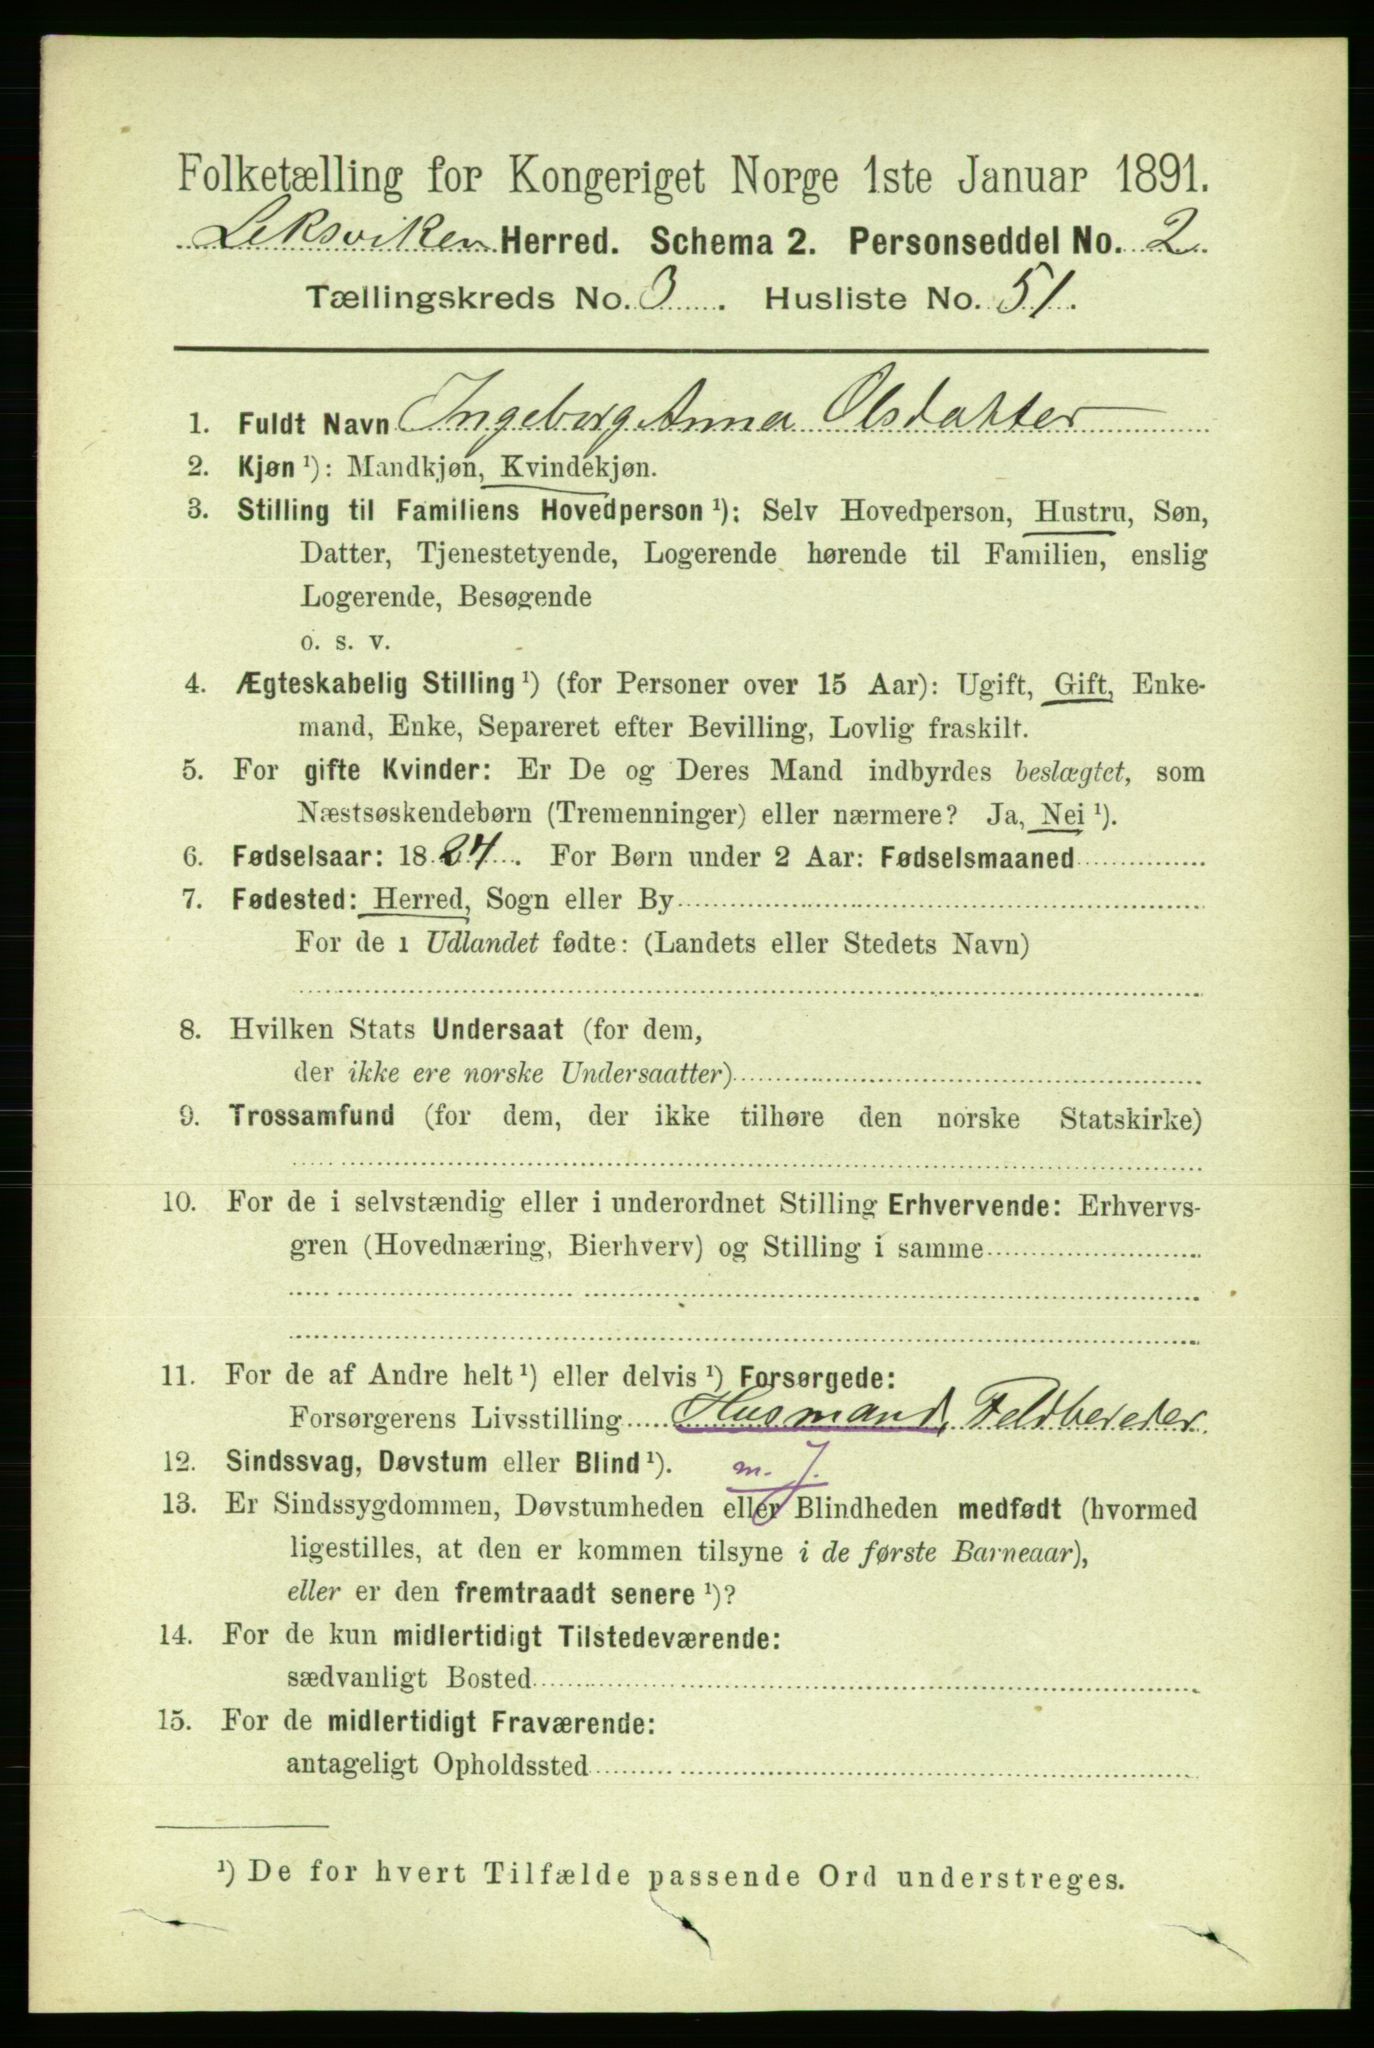 Folketælling for Kongeriget Norge 1ste Januar 1891.
Leksviken Herred. Schema 2. Personseddel No. 2.
Tællingskreds No. 3. Husliste No. 51.
1. Fuldt Navn Ingeborg Anna Olsdatter
2. Kjøn ¹): Mandkjøn, Kvindekjøn.
3. Stilling til Familiens Hovedperson ¹): Selv Hovedperson, Hustru, Søn,
Datter, Tjenestetyende, Logerende hørende til Familien, enslig
Logerende, Besøgende
o. s. v.
4. Ægteskabelig Stilling ¹) (for Personer over 15 Aar): Ugift, Gift, Enke-
mand, Enke, Separeret efter Bevilling, Lovlig fraskilt.
5. For gifte Kvinder: Er De og Deres Mand indbyrdes beslægtet, som
Næstsøskendebørn (Tremenninger) eller nærmere? Ja, Nei ¹).
6. Fødselsaar: 18 . For Børn under 2 Aar: Fødselsmaaned
7. Fødested: Herred, Sogn eller By
For de i Udlandet fødte: (Landets eller Stedets Navn)
8. Hvilken Stats Undersaat (for dem,
der ikke ere norske Undersaatter)
9. Trossamfund (for dem, der ikke tilhøre den norske Statskirke)
10. For de i selvstændig eller i underordnet Stilling Erhvervende: Erhvervs-
gren (Hovednæring, Bierhverv) og Stilling i samme
11. For de af Andre helt ¹) eller delvis ¹) Forsørgede:
Forsørgerens Livsstilling Husmand, Feldbereder.
12. Sindssvag, Døvstum eller Blind ¹). m. J.
13. Er Sindssygdommen, Døvstumheden eller Blindheden medfødt (hvormed
ligestilles, at den er kommen tilsyne i de første Barneaar),
eller er den fremtraadt senere ¹)?
14. For de kun midlertidigt Tilstedeværende:
sædvanligt Bosted
15. For de midlertidigt Fraværende:
antageligt Opholdssted
¹) De for hvert Tilfælde passende Ord understreges.